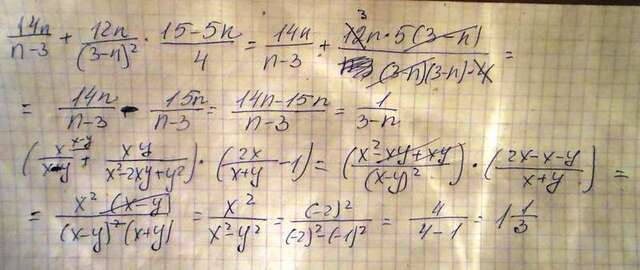 14n/(n-3) + 12n/(3-n)² · (15-5n)/4 = 14n/(n-3) + (12n · 5(3-n))/((3-n)(3-n)·4) =
= 14n/(n-3) - 15n/(n-3) = (14n-15n)/(n-3) = 1/(3-n)
(x/(x-y) + xy/(x²-2xy+y²)) · (2x/(x+y) - 1) = ((x²-xy+xy)/(x-y)²) · ((2x-x-y)/(x+y)) =
= (x²(x-y))/((x-y)²(x+y)) = x²/(x²-y²) = (-2)²/((-2)²-(-1)²) = 4/(4-1) = 1 1/3